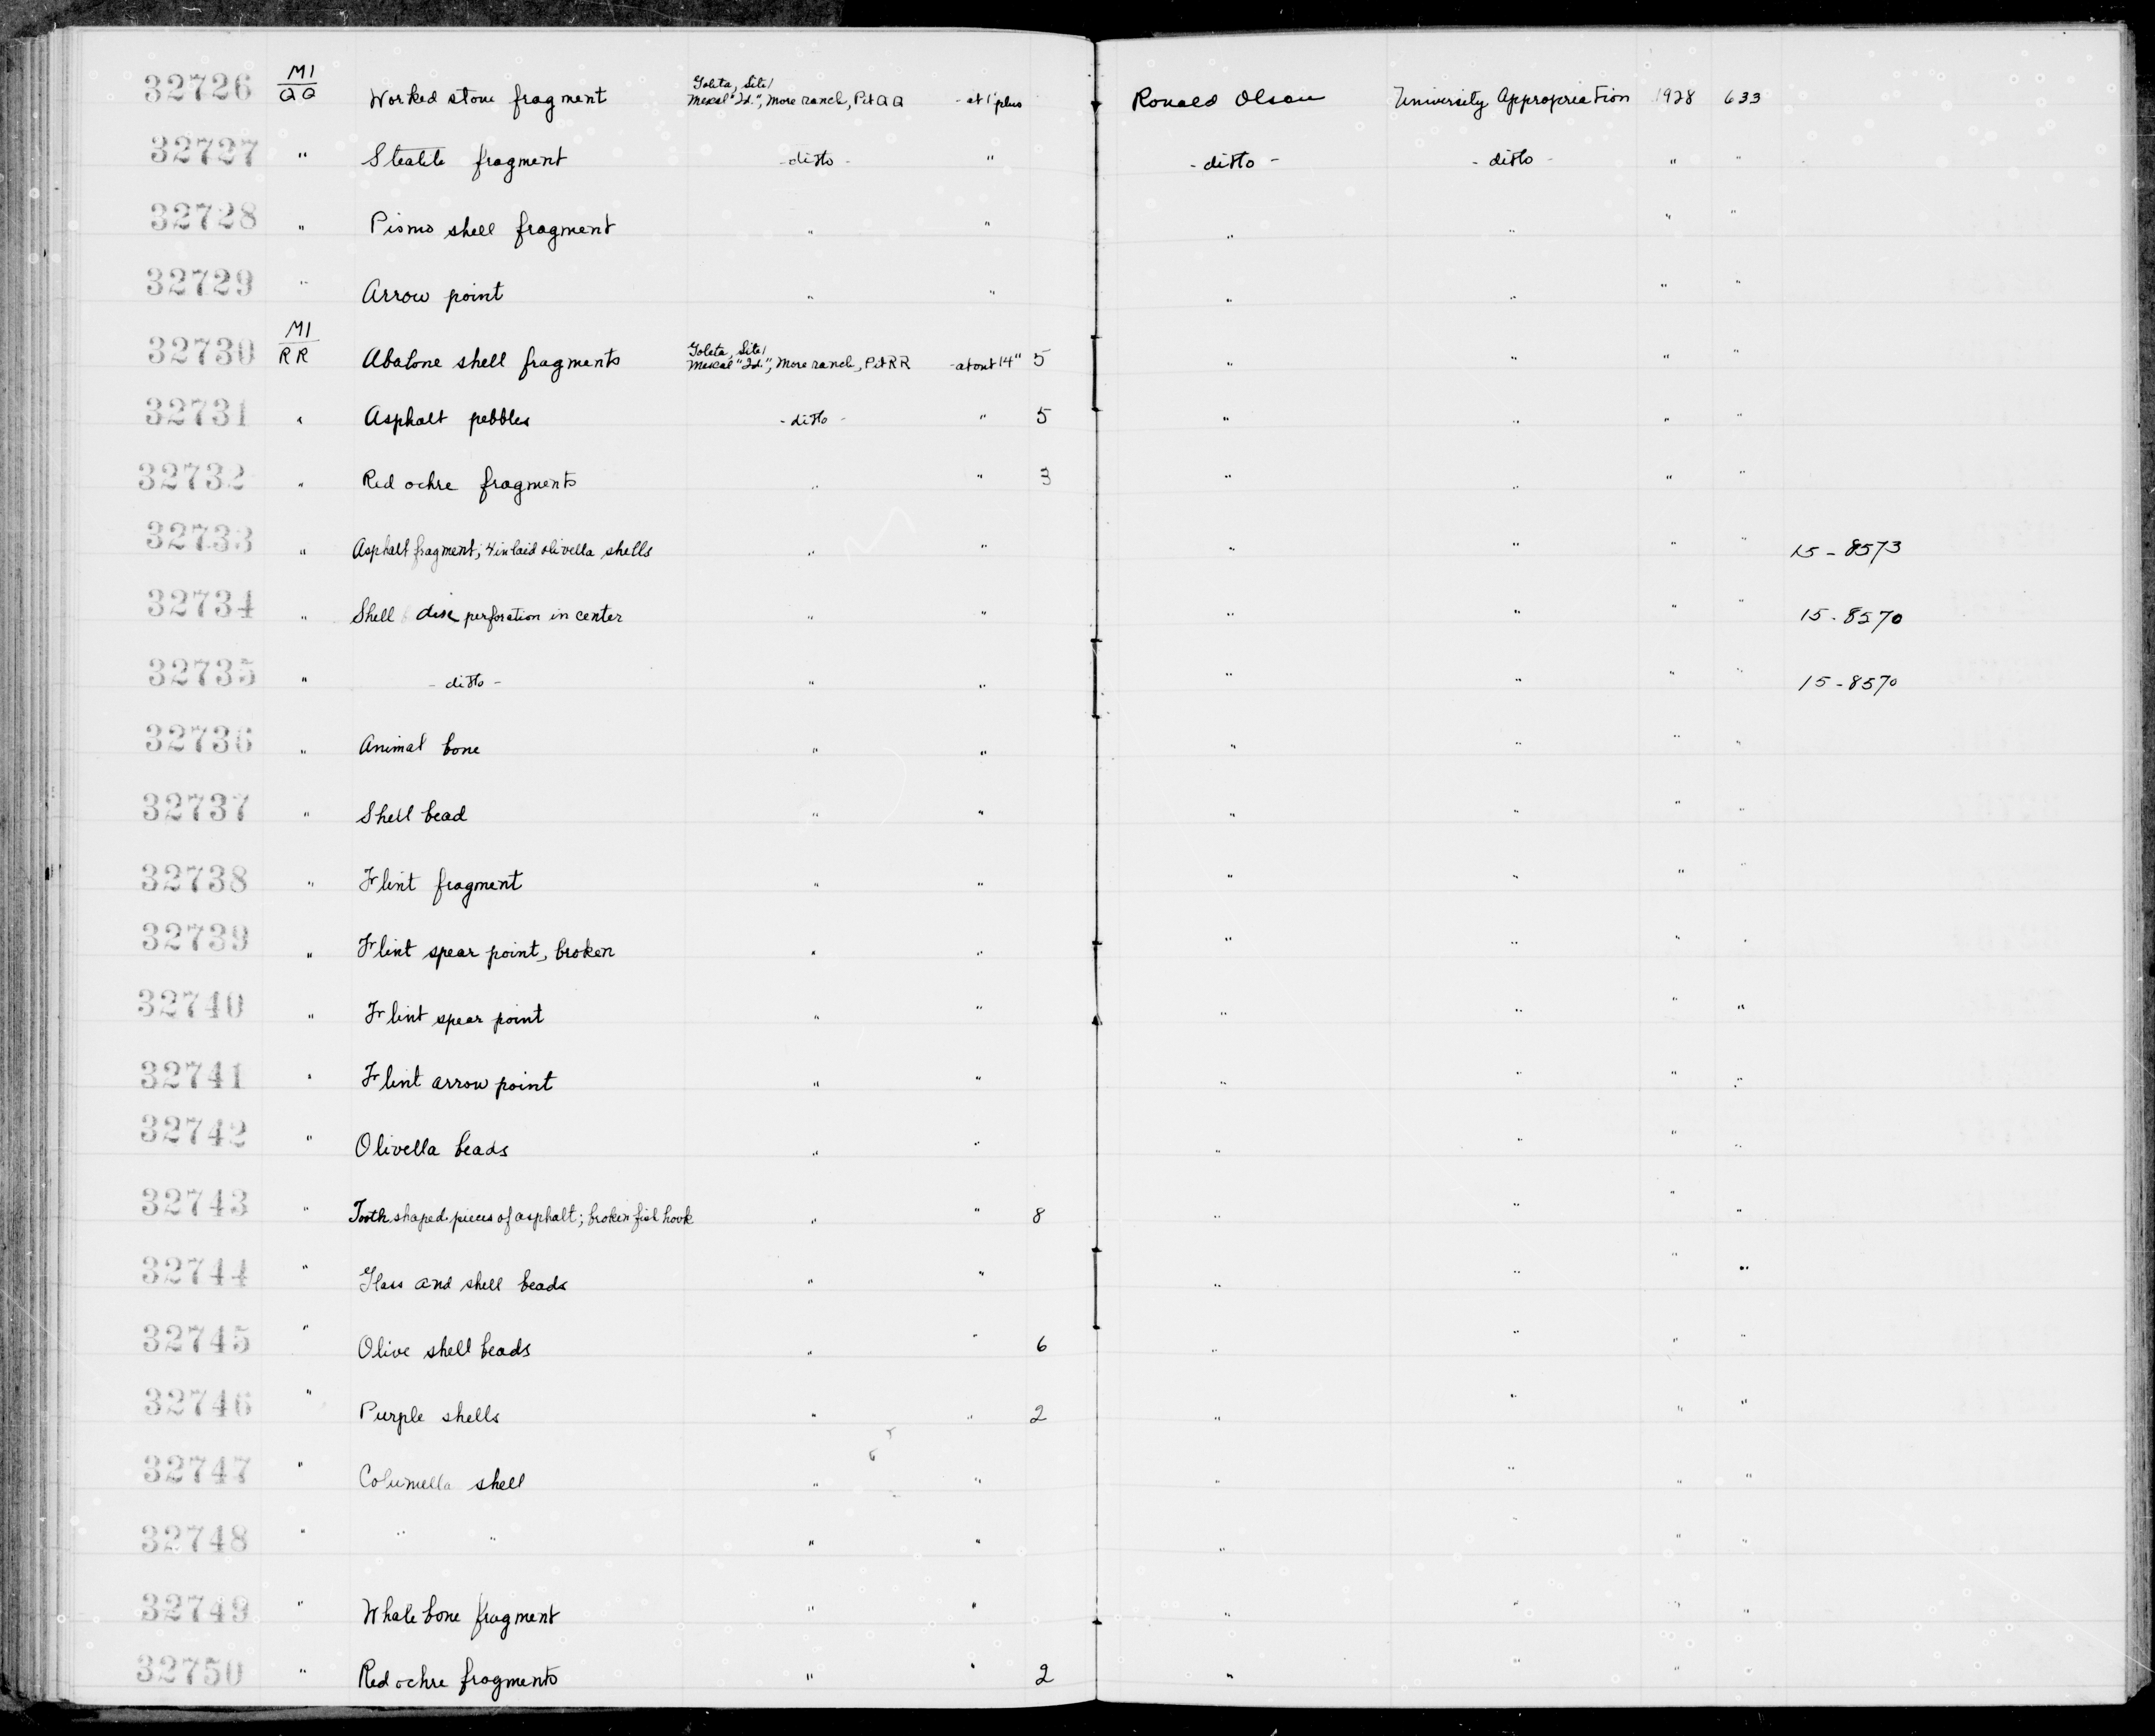 32726 M1/QQ Worked stone fragment Goleta, Site 1 Mescal "Id.", More ranch, Pit QQ - at 1' plus Ronald Olson University Appropriation 1928 633
32727 " Steatite fragment - ditto - " - ditto - - ditto - " "
32728 " Pismo shell fragment " " " " " "
32729 " Arrow point " " " " " "
32730 M1/RR Abalone shell fragments Goleta, Site 1 Mescal "Id.", More ranch, Pit RR - about 14" 5 " " " "
32731 " Asphalt pebbles - ditto - " 5 " " " "
32732 " Red ochre fragments " " 3 " " " "
32733 " Asphalt fragment; 4 inlaid olivella shells " " " " " " 15-8573
32734 " Shell disk perforation in center " " " " " " 15-8570
32735 " - ditto - " " " " " " 15-8570
32736 " Animal bone " " " " " "
32737 " Shell bead " " " " " "
32738 " Flint fragment " " " " " "
32739 " Flint spear point, broken " " " " " "
32740 " Flint spear point " " " " " "
32741 " Flint arrow point " " " " " "
32742 " Olivella beads " " " " " "
32743 " Tooth shaped pieces of asphalt; broken fish hook " " 8 " " " "
32744 " Glass and shell beads " " " " " "
32745 " Olive shell beads " " 6 " " " "
32746 " Purple shells " " 2 " " " "
32747 " Columella shell " " " " " "
32748 " " " " " " " " "
32749 " Whale bone fragment " " " " " "
32750 " Red ochre fragments " " 2 " " "